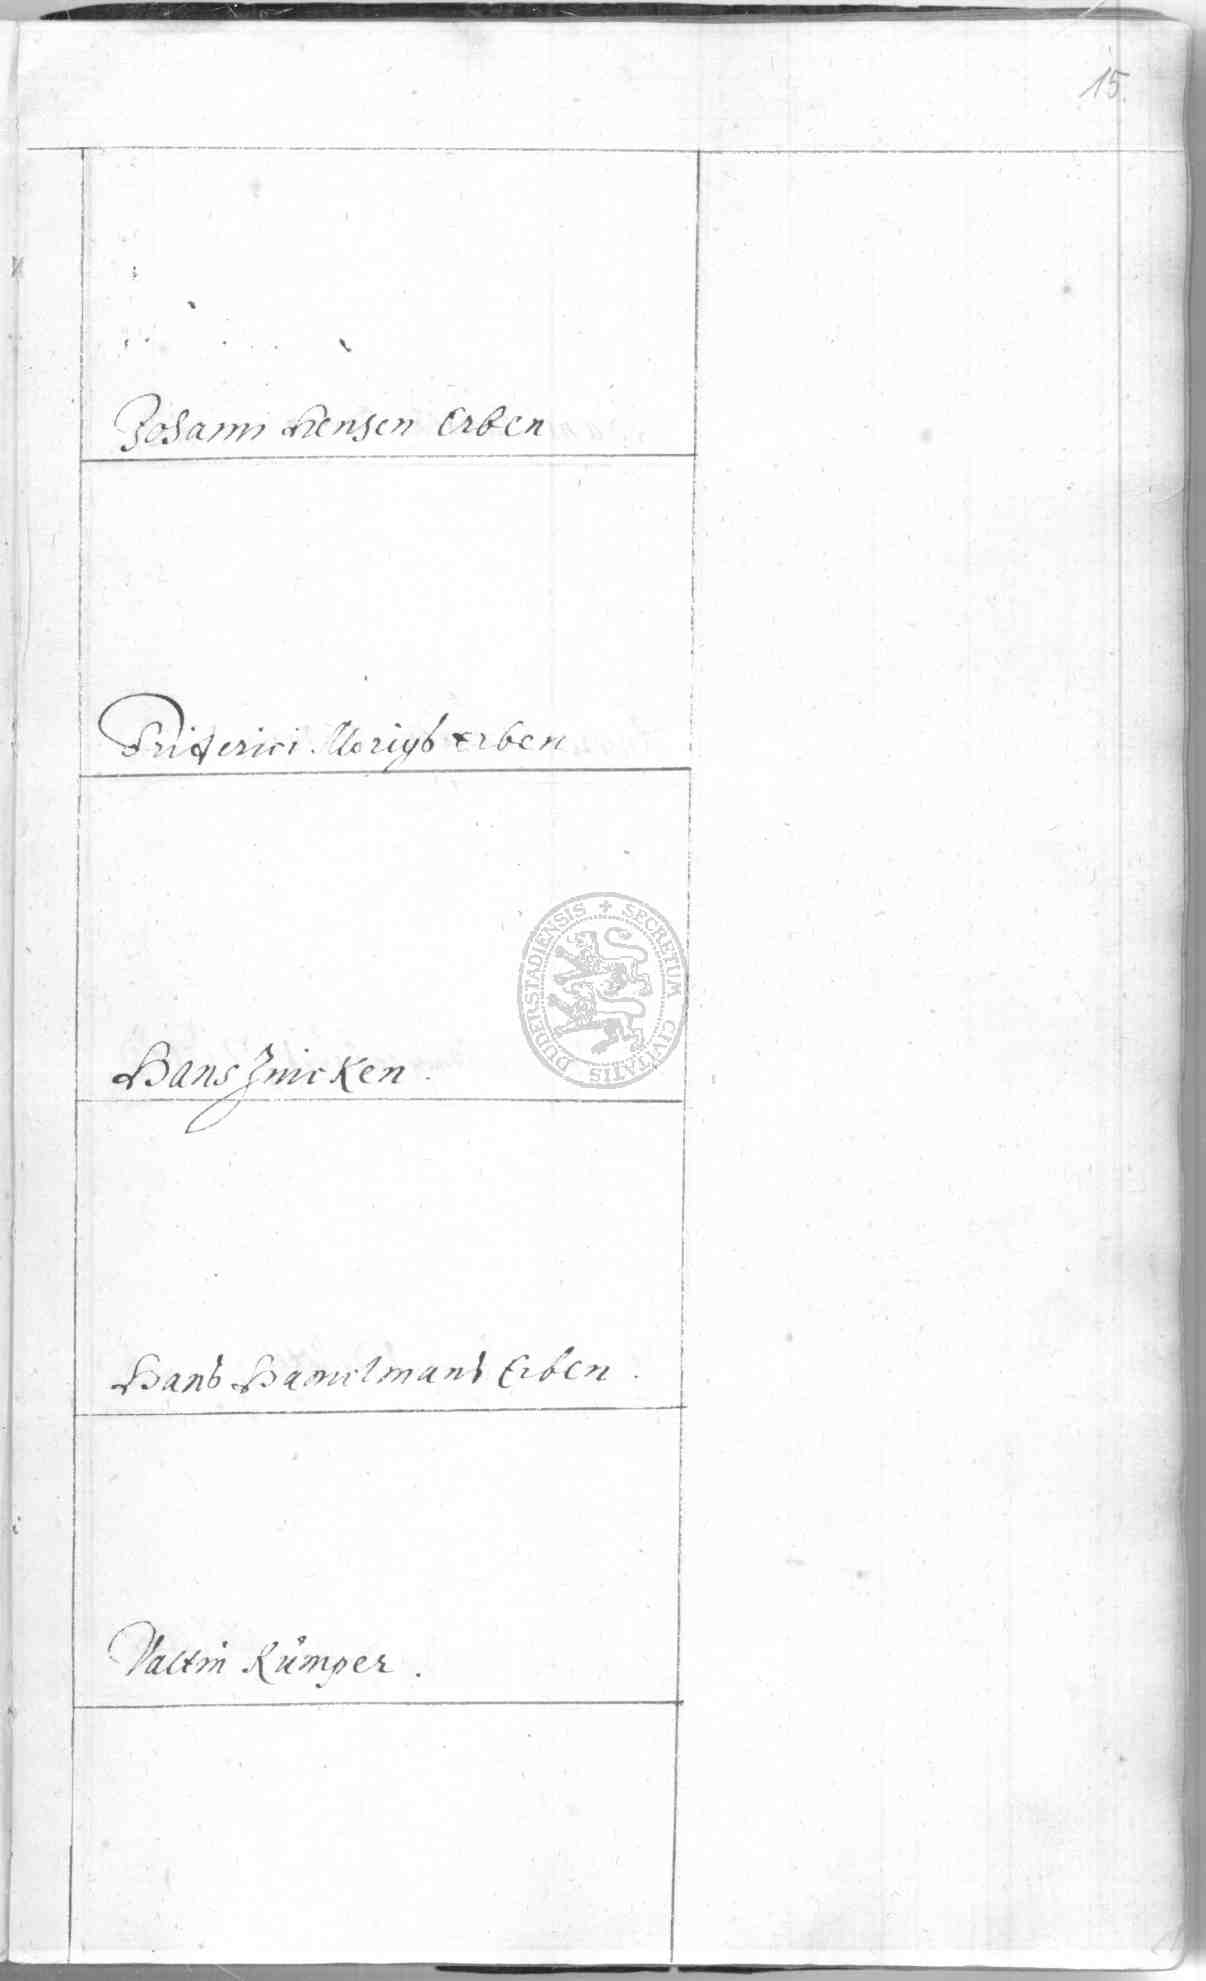 15.
Johann Hensen Erben
Friderici Moriges Erben
Hans Zwicken.
Hans Hamelmans Erben.
Valtin Kümper.
DUDERSTADIENSIS + SECRETUM CIVITATIS